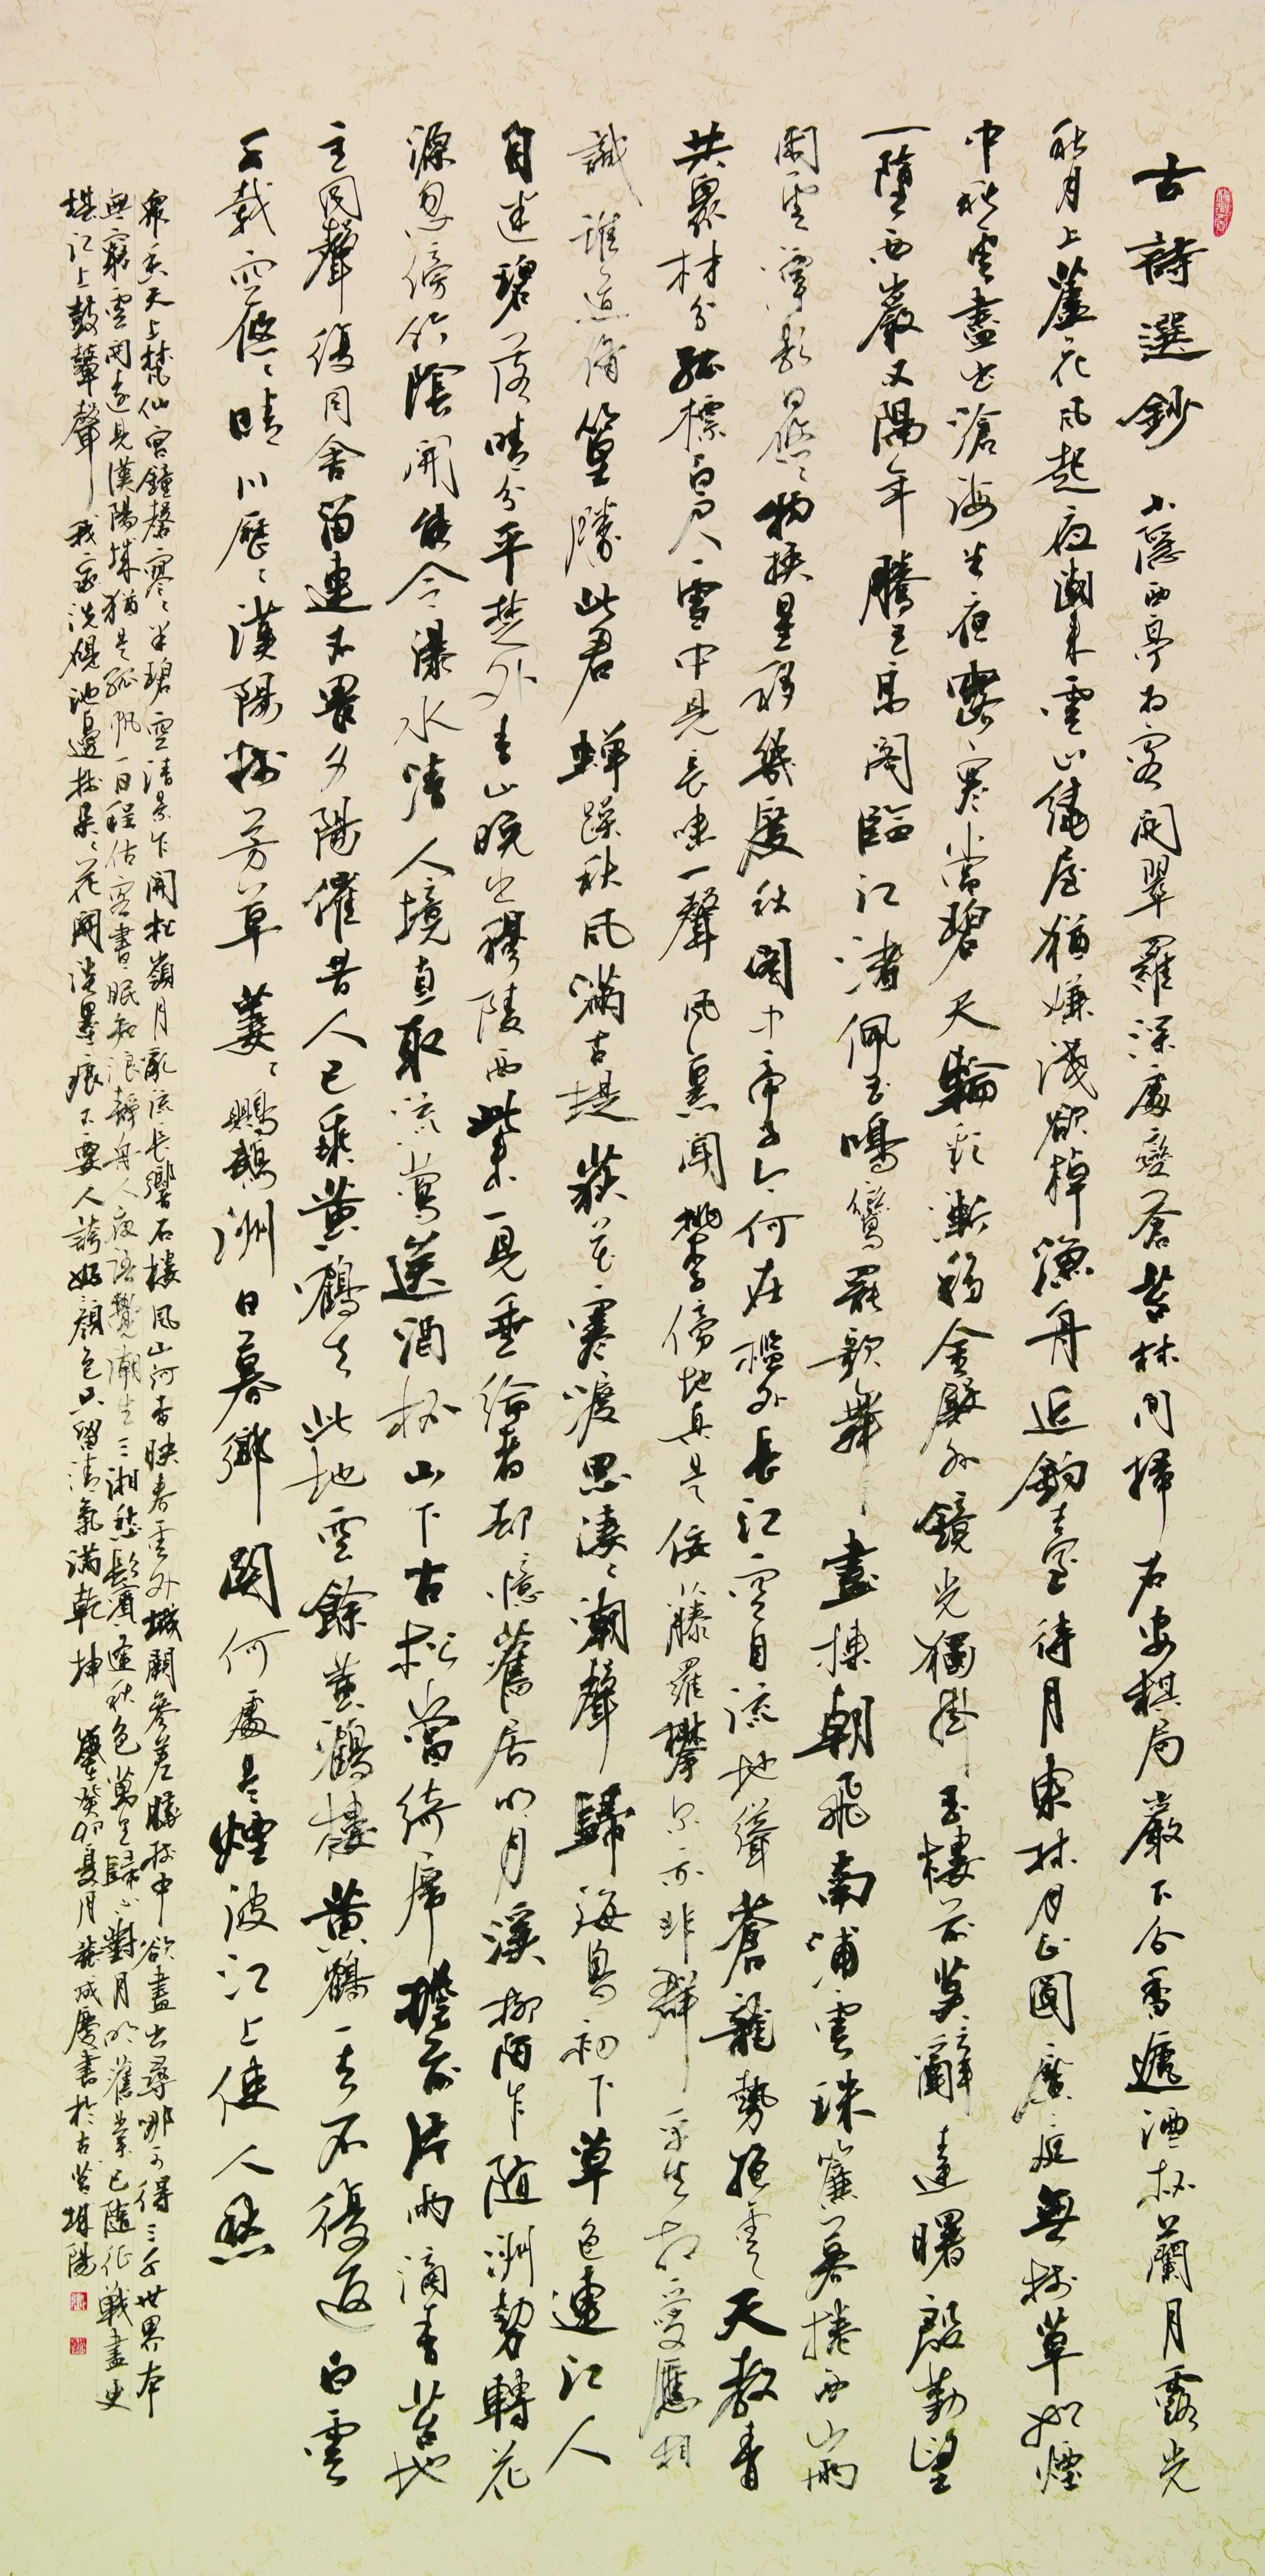 古詩選鈔 小隱西亭為客開翠蘿深處遍蒼苔林間掃石安棋局巖下分香遞酒杯蘭月露光
秋月上蘆花風起夜潮來雲山繞屋猶嫌淺欲棹漁舟近釣臺 待月東林月正圓廣庭無樹草如煙
中秋雲盡出滄海半夜露寒當碧天輪彩漸移金殿外鏡光猶掛玉樓前莫辭達曙殷勤望
一墮西巖又隔年 滕王高閣臨江渚佩玉鳴鸞罷歌舞畫棟朝飛南浦雲珠簾暮捲西山雨
閑雲潭影日悠々物換星移幾度秋閣中帝子今何在檻外長江空自流 地聳蒼龍勢抱雲天教青
共眾材分孤標百尺雪中見長嘯一聲風裏聞桃李傍地真是佞藤蘿攀爾亦非群平生相愛應相
識誰道脩篁勝此君 蟬躁秋風滿古堤荻花寒渡思淒々潮聲歸海鳥初下草色連江人
自迷碧落晴分平楚外青山晚出穆陵西此來一見垂綸者却憶舊居明月溪 柳陌乍隨洲勢轉花
源忽傍竹陰開能令瀑水清人境直取流鶯送酒杯山下古松當綺席檐前片雨滴青苔地
主同聲復同舍留連不畏夕陽催 昔人已乘黃鶴去此地空餘黃鶴樓黃鶴一去不復返白雲
千載空悠々晴川歷々漢陽樹芳草萋々鸚鵡洲日暮鄉關何處是煙波江上使人愁
眾香天上梵仙宮鐘磬寥々半碧空清景乍開松嶺月亂流長響石樓風山河杳映春雲外城闕參差曉樹中欲盡出尋那可得三千世界本
無窮 雲開遠見漢陽城猶是孤帆一日程估客晝眠知浪靜舟人夜語覺潮生三湘愁鬢逢秋色萬里歸心對月明舊業已隨征戰盡更
堪江上鼓鼙聲 我家洗硯池邊樹朵々花開淡墨痕不要人誇好顏色只留清氣滿乾坤 歲在癸卯夏月 成慶書於古